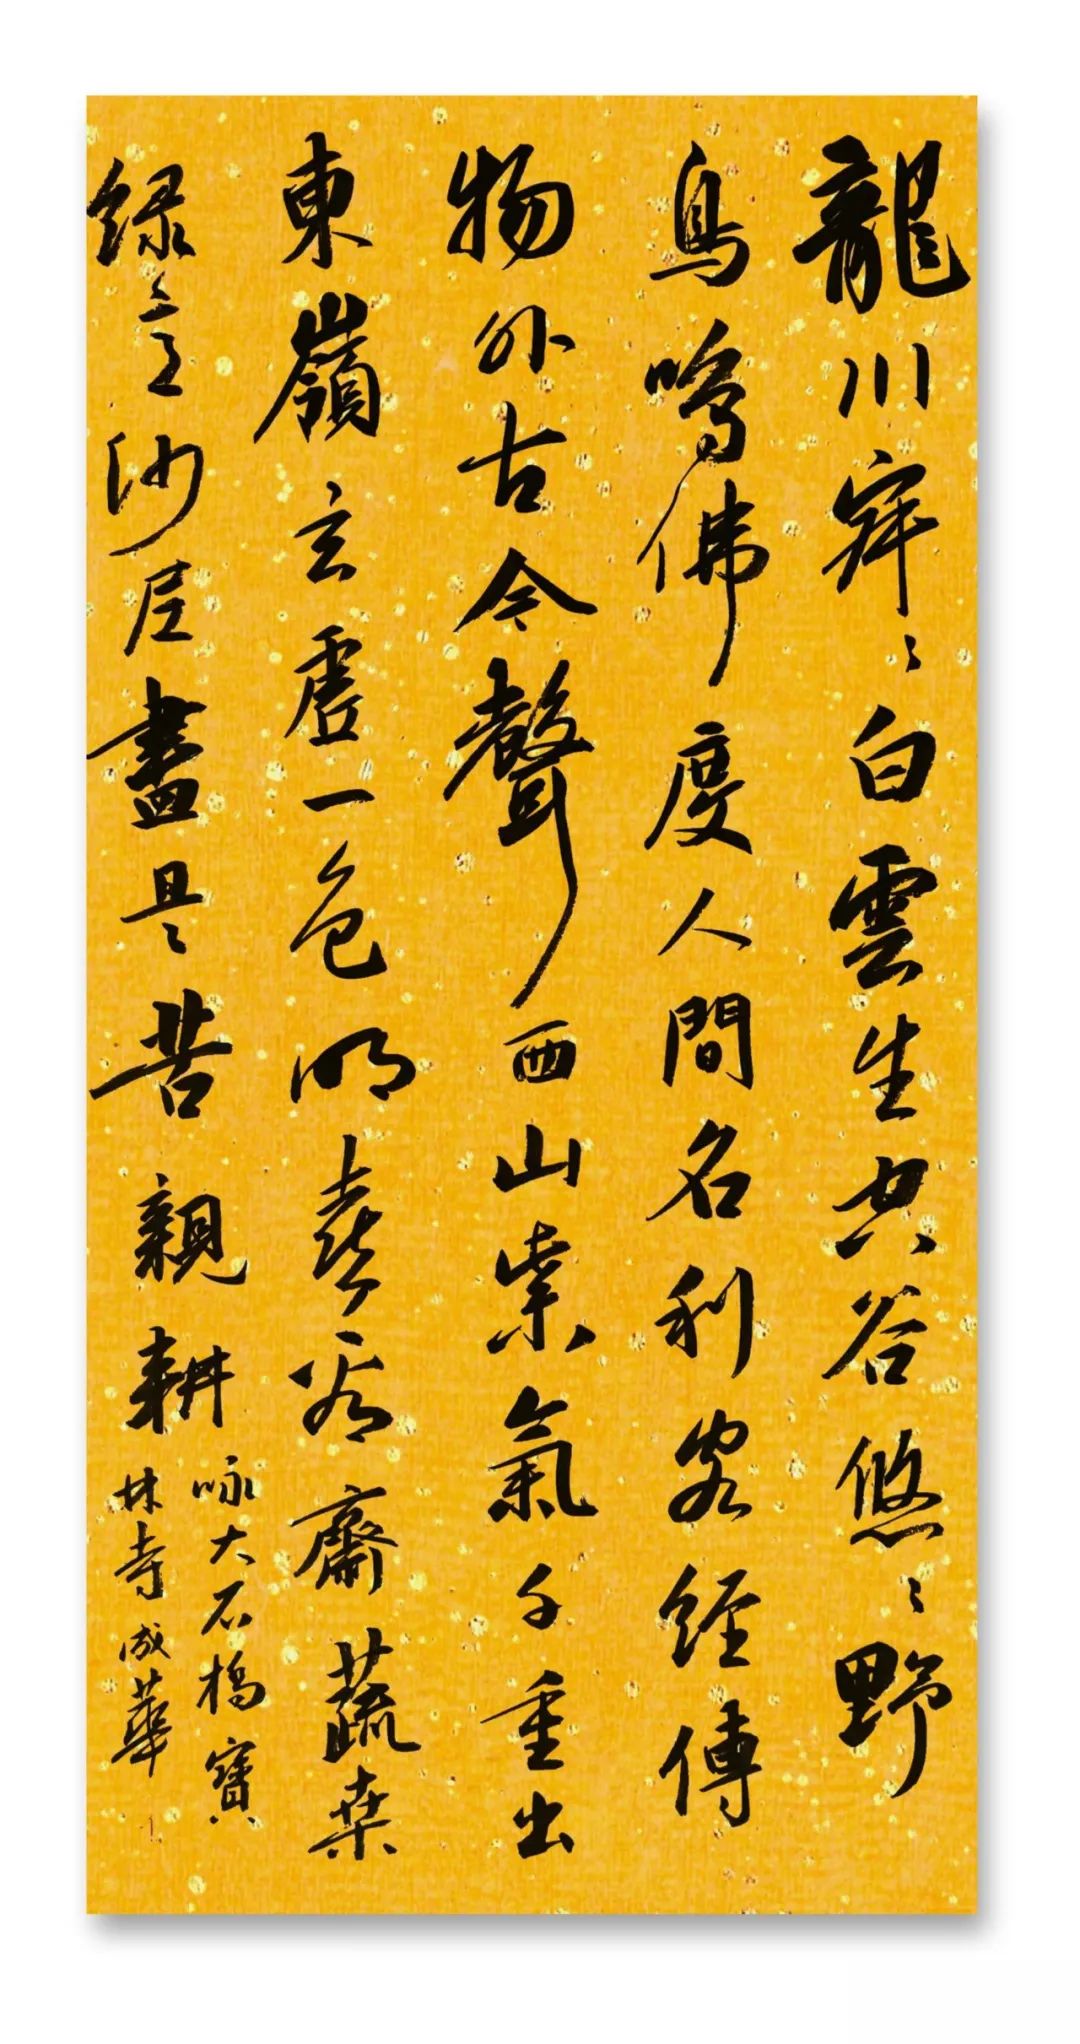 龍川寂〻白雲生空谷悠〻野
鳥鳴佛度人間名利客經傳
物外古今聲西山紫氣千重出
東嶺玄虛一色明喜看齋蔬菜
绿意沙尼盡是苦親耕
咏大石橋寶
林寺成華